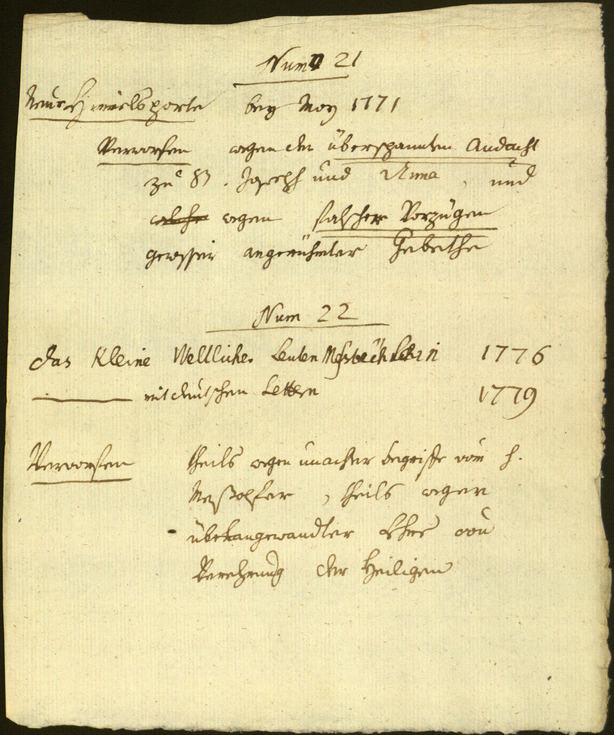 Num 21
Neue Himelsporte bey Moy 1771
Verworfen wegen der überspannten Andacht
zu S. Joseph und Anna, und
welche wegen falscher Vorzügen
gewisser angerühmter Gebethe
Num 22
das Kleine Weltlicher Leuten Meßbüchlein 1776
mit deutschen Lettern 1779
Verworfen theils wegen unächter begriffe vom h.
Meßopfer, theils wegen
übelangewandter Lehre von
Verehrung der Heiligen